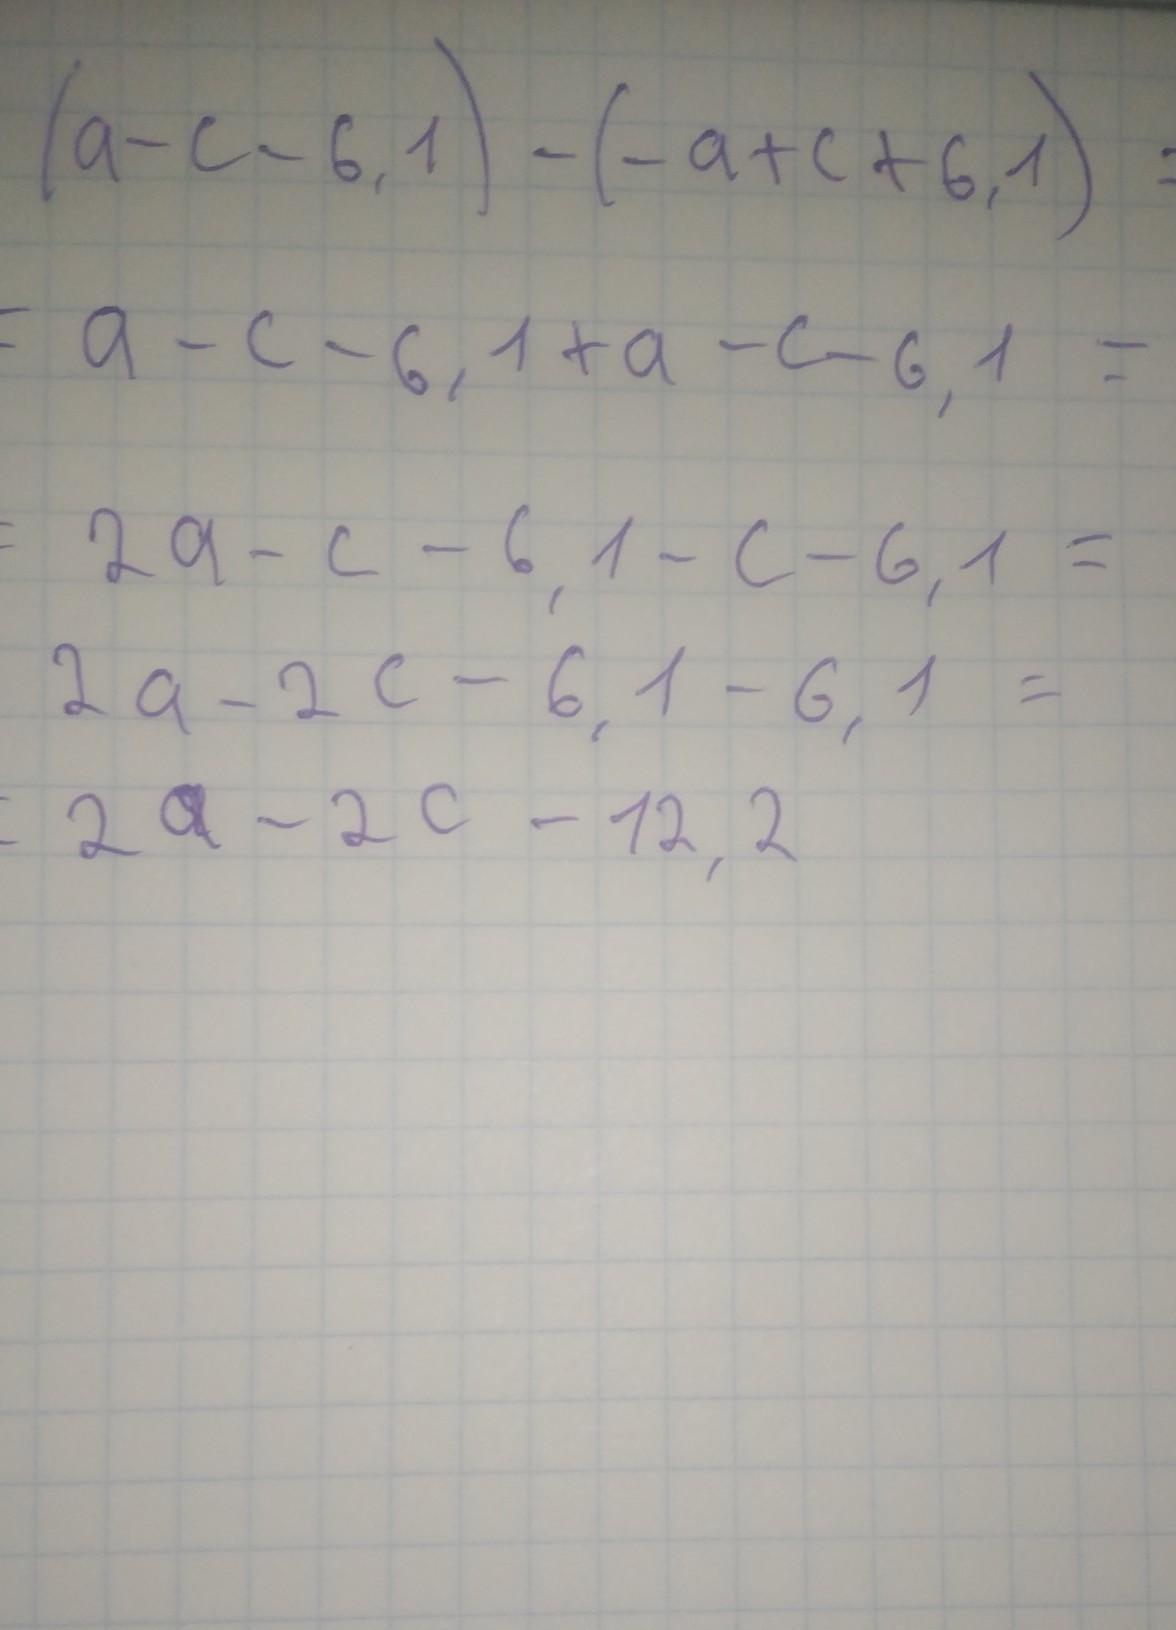 (a-c-6,1)-(-a+c+6,1)=
= a-c-6,1+a-c-6,1 =
= 2a-c-6,1-c-6,1 =
2a-2c-6,1-6,1 =
= 2a-2c-12,2